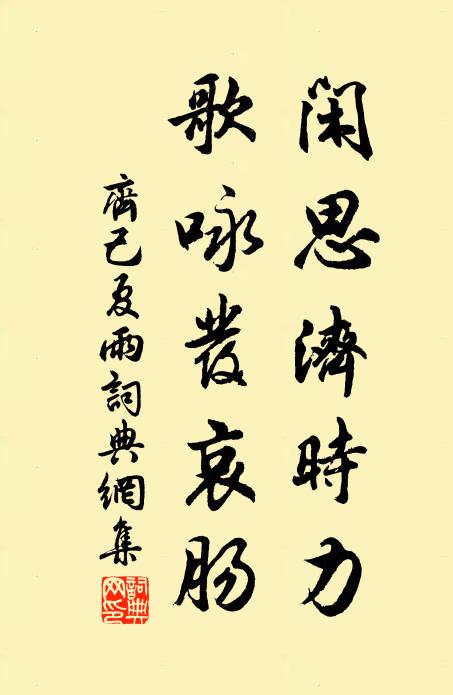 閑思濟時力
歌咏發哀肠
齊己夏雨詞典網集
詞典网印